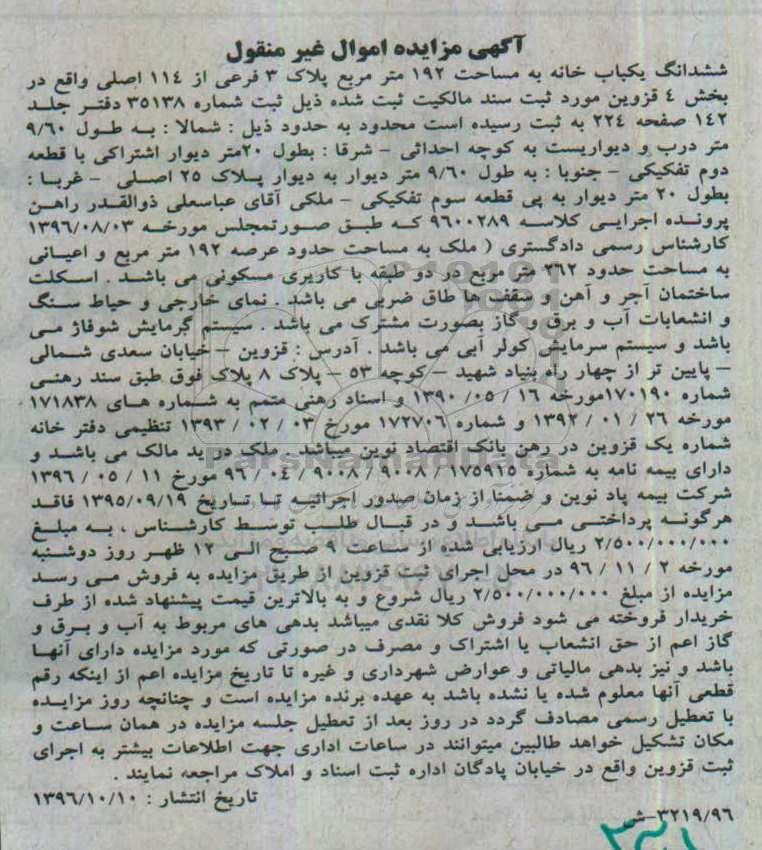 آگهی مزایده اموال غیر منقول
ششدانگ یکباب خانه به مساحت ۱۹۲ متر مربع پلاک ۳ فرعی از ۱۱۴ اصلی واقع در
بخش ۴ قزوین مورد ثبت سند مالکیت ثبت شده ذیل ثبت شماره ۳۵۱۳۸ دفتر جلد
۱۴۲ صفحه ۲۲۴ به ثبت رسیده است محدود به حدود ذیل : شمالا : به طول ۹/۶۰
متر درب و دیواریست به کوچه احداثی - شرقا : بطول ۲۰متر دیوار اشتراکی با قطعه
دوم تفکیکی - جنوبا : به طول ۹/۶۰ متر دیوار به دیوار پلاک ۲۵ اصلی - غربا :
بطول ۲۰ متر دیوار به پی قطعه سوم تفکیکی - ملکی آقای عباسعلی ذوالقدر راهن
پرونده اجرایی کلاسه ۹۶۰۰۲۸۹ که طبق صورتمجلس مورخه ۱۳۹۶/۰۸/۰۳
کارشناس رسمی دادگستری ( ملک به مساحت حدود عرصه ۱۹۲ متر مربع و اعیانی
به مساحت حدود ۲۶۲ متر مربع در دو طبقه با کاربری مسکونی می باشد . اسکلت
ساختمان آجر و آهن و سقف ها طاق ضربی می باشد . نمای خارجی و حیاط سنگ
و انشعابات آب و برق و گاز بصورت مشترک می باشد . سیستم گرمایش شوفاژ می
باشد و سیستم سرمایش کولر آبی می باشد . آدرس : قزوین - خیابان سعدی شمالی
- پایین تر از چهار راه بنیاد شهید - کوچه ۵۳ - پلاک ۸ پلاک فوق طبق سند رهنی
شماره ۱۷۰۱۹۰مورخه ۱۶ / ۰۵ / ۱۳۹۰ و اسناد رهنی متمم به شماره های ۱۷۱۸۳۸
مورخه ۲۶ / ۰۱ / ۱۳۹۲ و شماره ۱۷۲۷۰۶ مورخ ۰۳ / ۰۲ / ۱۳۹۳ تنظیمی دفتر خانه
شماره یک قزوین در رهن بانک اقتصاد نوین میباشد . ملک در ید مالک می باشد و
دارای بیمه نامه به شماره ۱۷۵۹۱۵ / ۹۰۰۸ / ۹۰۰۸ / ۰۴ / ۹۶ مورخ ۱۱ / ۰۵ / ۱۳۹۶
شرکت بیمه پاد نوین و ضمنا از زمان صدور اجرائیه تا تاریخ ۱۳۹۵/۰۹/۱۹ فاقد
هرگونه پرداختی می باشد و در قبال طلب توسط کارشناس ، به مبلغ
۲/۵۰۰/۰۰۰/۰۰۰ ریال ارزیابی شده از ساعت ۹ صبح الی ۱۲ ظهر روز دوشنبه
مورخه ۲ / ۱۱ / ۹۶ در محل اجرای ثبت قزوین از طریق مزایده به فروش می رسد
مزایده از مبلغ ۲/۵۰۰/۰۰۰/۰۰۰ ریال شروع و به بالاترین قیمت پیشنهاد شده از طرف
خریدار فروخته می شود فروش کلا نقدی میباشد بدهی های مربوط به آب و برق و
گاز اعم از حق انشعاب یا اشتراک و مصرف در صورتی که مورد مزایده دارای آنها
باشد و نیز بدهی مالیاتی و عوارض شهرداری و غیره تا تاریخ مزایده اعم از اینکه رقم
قطعی آنها معلوم شده یا نشده باشد به عهده برنده مزایده است و چنانچه روز مزایده
با تعطیل رسمی مصادف گردد در روز بعد از تعطیل جلسه مزایده در همان ساعت و
مکان تشکیل خواهد طالبین میتوانند در ساعات اداری جهت اطلاعات بیشتر به اجرای
ثبت قزوین واقع در خیابان پادگان اداره ثبت اسناد و املاک مراجعه نمایند .
تاریخ انتشار : ۱۳۹۶/۱۰/۱۰
۳۲۱۹/۹۶-ش
ParsNamadData